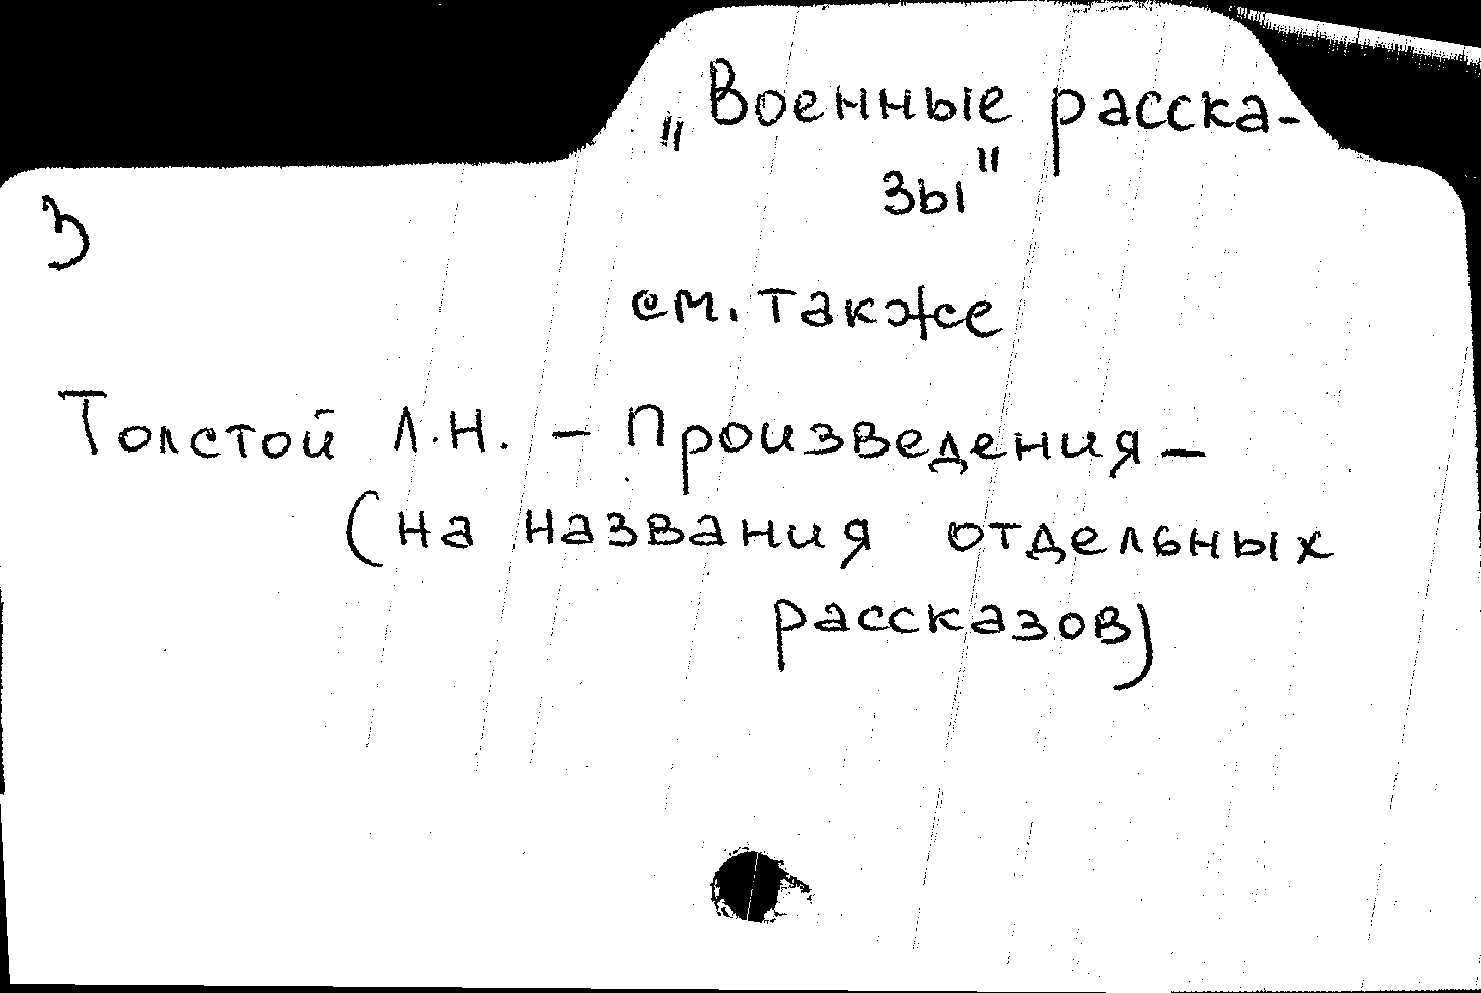 „Военные расска-
зы"
З
см. также
Толстой Л.Н. – Произведения –
(на названия отдельных
рассказов)